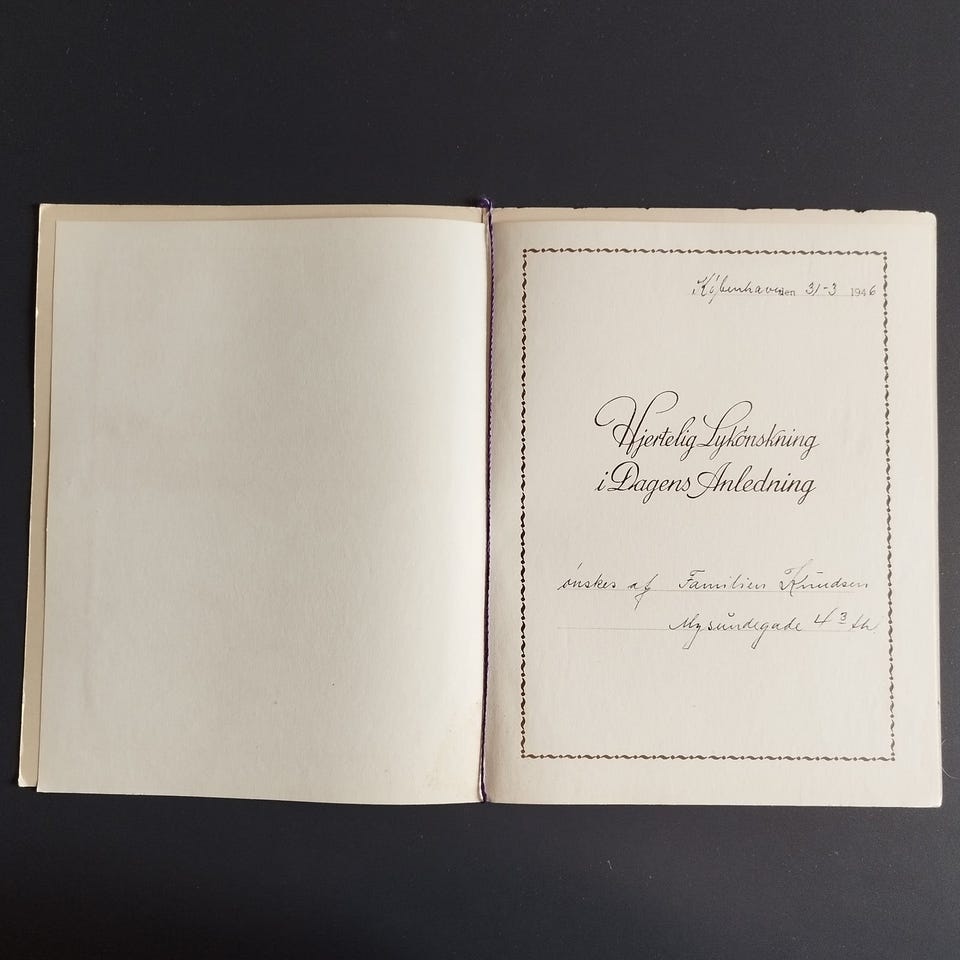 København den 31-3 1946
Hjertelig Lykönskning
i Dagens Anledning
ønskes af Familien Knudsen
Mysundegade 4 3 th